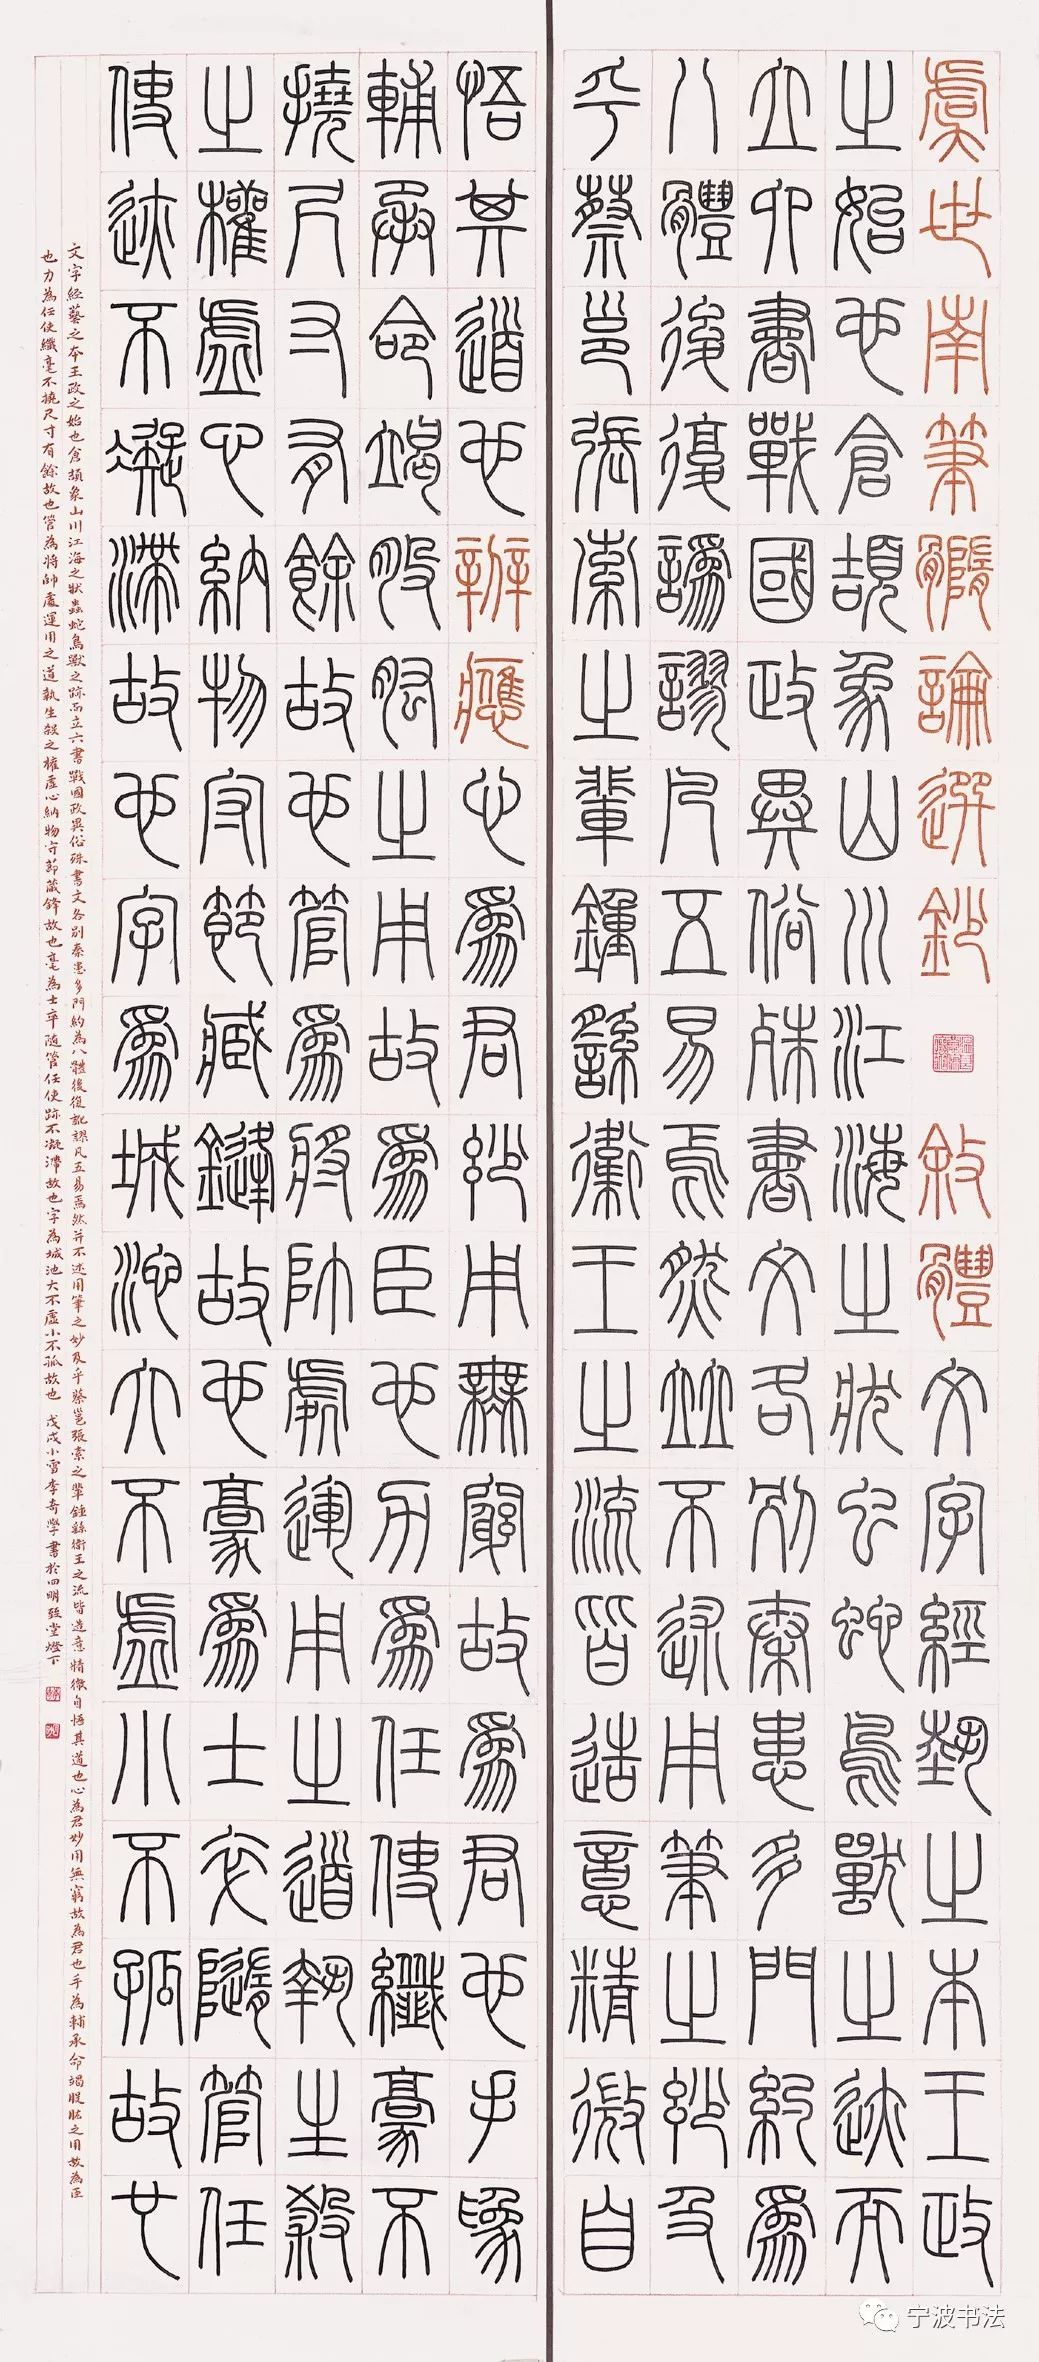 虞世南筆髓論選鈔敘體文字經藝之本王政
之始也倉頡象山川江海之狀虫蛇鳥獸之迹而
立六書戰國政異俗殊書文各別秦患多門約為
八體後復譌謬凡五易焉然並不述用筆之妙及
乎蔡邕張索之輩鍾繇衛王之流皆造意精微自
悟其道也辨應心為君妙用無窮故為君也手為
輔承命竭股肱之用故為臣也力為任使纖豪不
撓尺寸有餘故也管為將帥處運用之道執生殺
之權虛心納物守節藏鏠故也豪為士卒隨管任
使迹不凝滯故也字為城池大不虛小不孤故也
文字經藝之本王政之始也倉頡象山川江海之狀蟲蛇鳥獸之跡而立六書戰國政異俗殊書文各別秦患多門約為八體後復訛謬凡五易焉然并不述用筆之妙及乎蔡邕張索之輩鍾繇衛王之流皆造意精微自悟其道也心為君妙用無窮故為君也手為輔承命竭股肱之用故為臣
也力為任使纖毫不撓尺寸有餘故也管為將帥處運用之道執生殺之權虛心納物守節藏鋒故也毫為士卒隨管任使跡不凝滯故也字為城池大不虛小不孤故也 戊戌小雪李奇學書於四明堂燈下
宁波书法